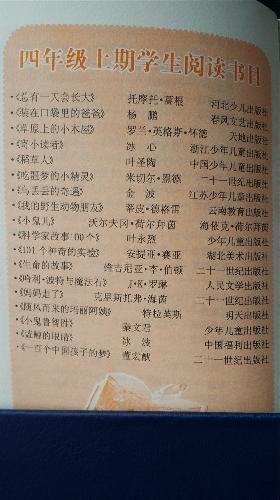 四年级上期学生阅读书目
·《总有一天会长大》 托摩脱·蒿根 河北少儿出版社
·《装在口袋里的爸爸》 杨鹏 春风文艺出版社
·《草原上的小木屋》 罗兰·英格斯·怀德 天地出版社
·《寄小读者》 冰心 浙江少年儿童出版社
·《稻草人》 叶圣陶 中国少年儿童出版社
·《吃噩梦的小精灵》 米切尔·恩德 二十一世纪出版社
·《乌丢丢的奇遇》 金波 江苏少年儿童出版社
·《我的野生动物朋友》 蒂皮·德格雷 云南教育出版社
·《小鬼儿》 沃尔夫冈·荷尔拜茵 海依克·荷尔拜茵
·《科学家故事100个》 叶永烈 少年儿童出版社
·《101个神奇的实验》 安提亚·赛亚 湖北美术出版社
·《生命的故事》 维吉尼亚·李·伯顿 二十一世纪出版社
·《哈利·波特与魔法石》 J·K·罗琳 人民文学出版社
·《妈妈走了》 克里斯托弗·海茵 二十一世纪出版社
·《随风而来的玛丽阿姨》 特拉芙斯 明天出版社
·《小鬼鲁智胜》 秦文君 少年儿童出版社
·《蓝鲸的眼睛》 冰波 中国福利出版社
·《一百个中国孩子的梦》 董宏猷 二十一世纪出版社